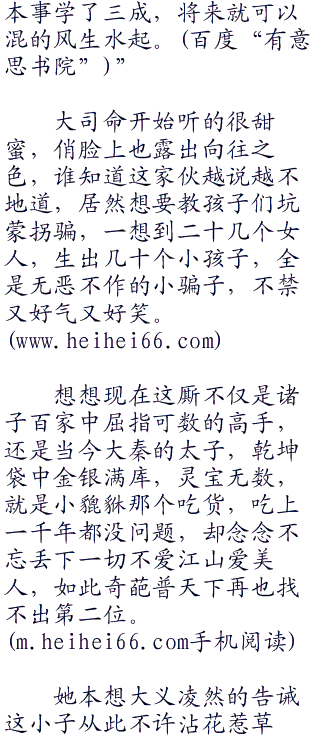 本事学了三成，将来就可以
混的风生水起。(百度“有意
思书院”)”
大司命开始听的很甜
蜜，俏脸上也露出向往之
色，谁知道这家伙越说越不
地道，居然想要教孩子们坑
蒙拐骗，一想到二十几个女
人，生出几十个小孩子，全
是无恶不作的小骗子，不禁
又好气又好笑。
(www.heihei66.com)
想想现在这厮不仅是诸
子百家中屈指可数的高手，
还是当今大秦的太子，乾坤
袋中金银满库，灵宝无数，
就是小貔貅那个吃货，吃上
一千年都没问题，却念念不
忘丢下一切不爱江山爱美
人，如此奇葩普天下再也找
不出第二位。
(m.heihei66.com手机阅读)
她本想大义凌然的告诫
这小子从此不许沾花惹草